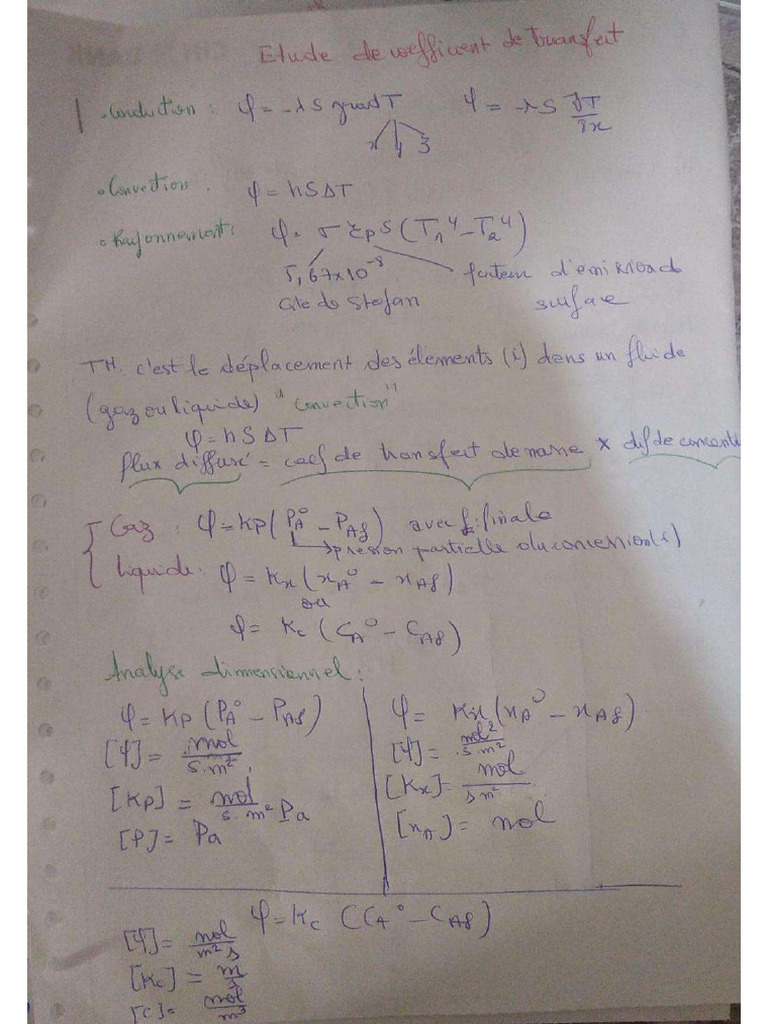 Etude de coefficient de transfert
• Conduction : φ = -λ S grad T φ = -λ S ∂T/∂x
x y z
• Convection : φ = h S Δ T
• Rayonnement : φ = σ εp S (T₁⁴ - T₂⁴)
5,67×10⁻⁸ facteur d'émission de
Cte de Stefan surface
TM. c'est le déplacement des élements (i) dans un fluide
(gaz ou liquide) "convection"
φ = h S Δ T
flux diffusé = coef de transfert de masse × dif de concent
Gaz : φ = KP (PA° - PAf) avec f: finale
→ pression partielle du
liquide : φ = Kx (xA° - xAf)
ou
φ = Kc (CA° - CAf)
Analyse dimensionnel :
φ = KP (PA° - PAf)
[φ] = mol/s.m²
[KP] = mol/s.m² Pa
[P] = Pa
φ = Kx (xA° - xAf)
[φ] = mol²/s.m²
[Kx] = mol/s m²
[xA] = mol
φ = Kc (CA° - CAf)
[φ] = mol/m² s
[Kc] = m/s
[C] = mol/m³